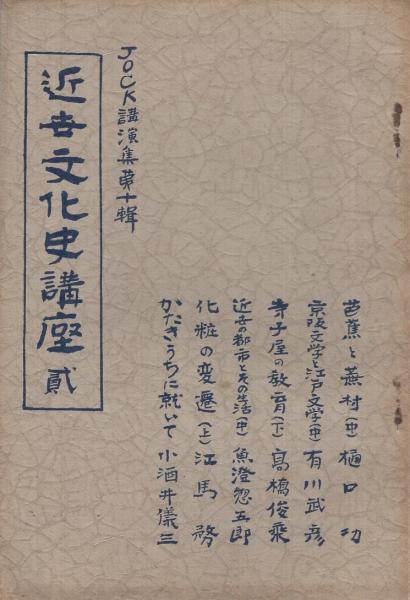 近世文化史講座 貳
JOCK講演集第十輯
芭蕉と蕪村(中) 樋口功
京阪文学と江戸文学(中) 有川武彦
寺子屋の教育(下) 高橋俊乗
近世の都市とその生活(中) 魚澄惣五郎
化粧の変遷(上) 江馬務
かたきうちに就いて 小酒井儀三